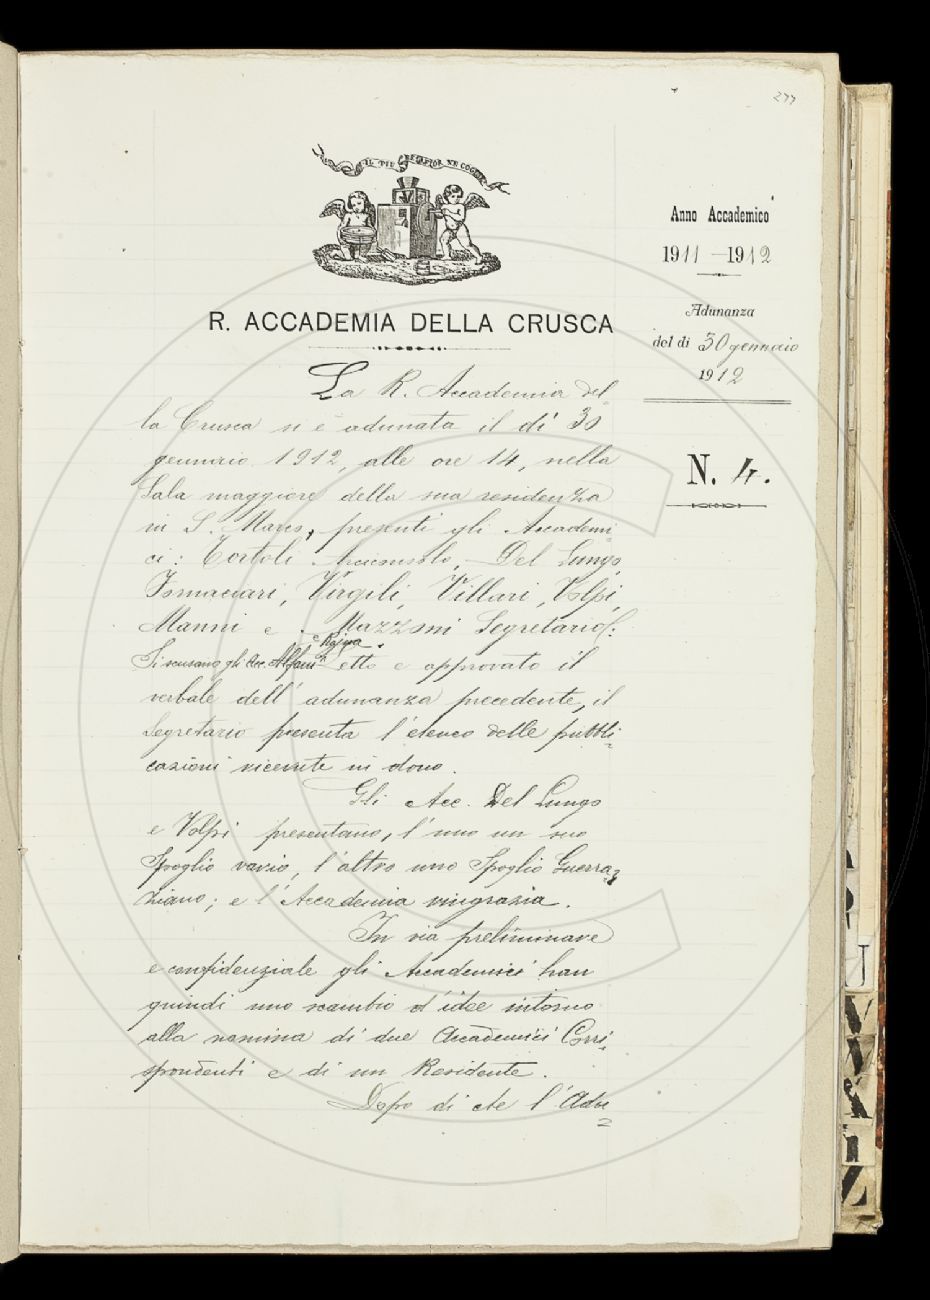 277
IL PIÙ BEL FIOR NE COGLIE
Anno Accademico
1911-1912
Adunanza
del dì 30 gennaio
1912
N. 4.
R. ACCADEMIA DELLA CRUSCA
La R. Accademia del
la Crusca si è adunata il dì 30
gennaio 1912, alle ore 14, nella
Sala maggiore della sua residenza
in S. Marco, presenti gli Accademi
ci: Tortoli Arciconsolo, Del Lungo
Fornaciari, Virgili, Villari, Volpi,
Manni e Mazzoni Segretario.
e Rajna.
Si scusano gli Acc. Alfani Letto e approvato il
verbale dell'adunanza precedente, il
Segretario presenta l'elenco delle pubbli
cazioni ricevute in dono.
Gli Acc. Del Lungo
e Volpi presentano, l'uno un suo
Spoglio vario, l'altro uno Spoglio Guerraz
ziano; e l'Accademia ringrazia.
In via preliminare
e confidenziale gli Accademici han
quindi uno scambio d'idee intorno
alla nomina di due Accademici Corri
spondenti e di un Residente.
Dopo di che l'Adu